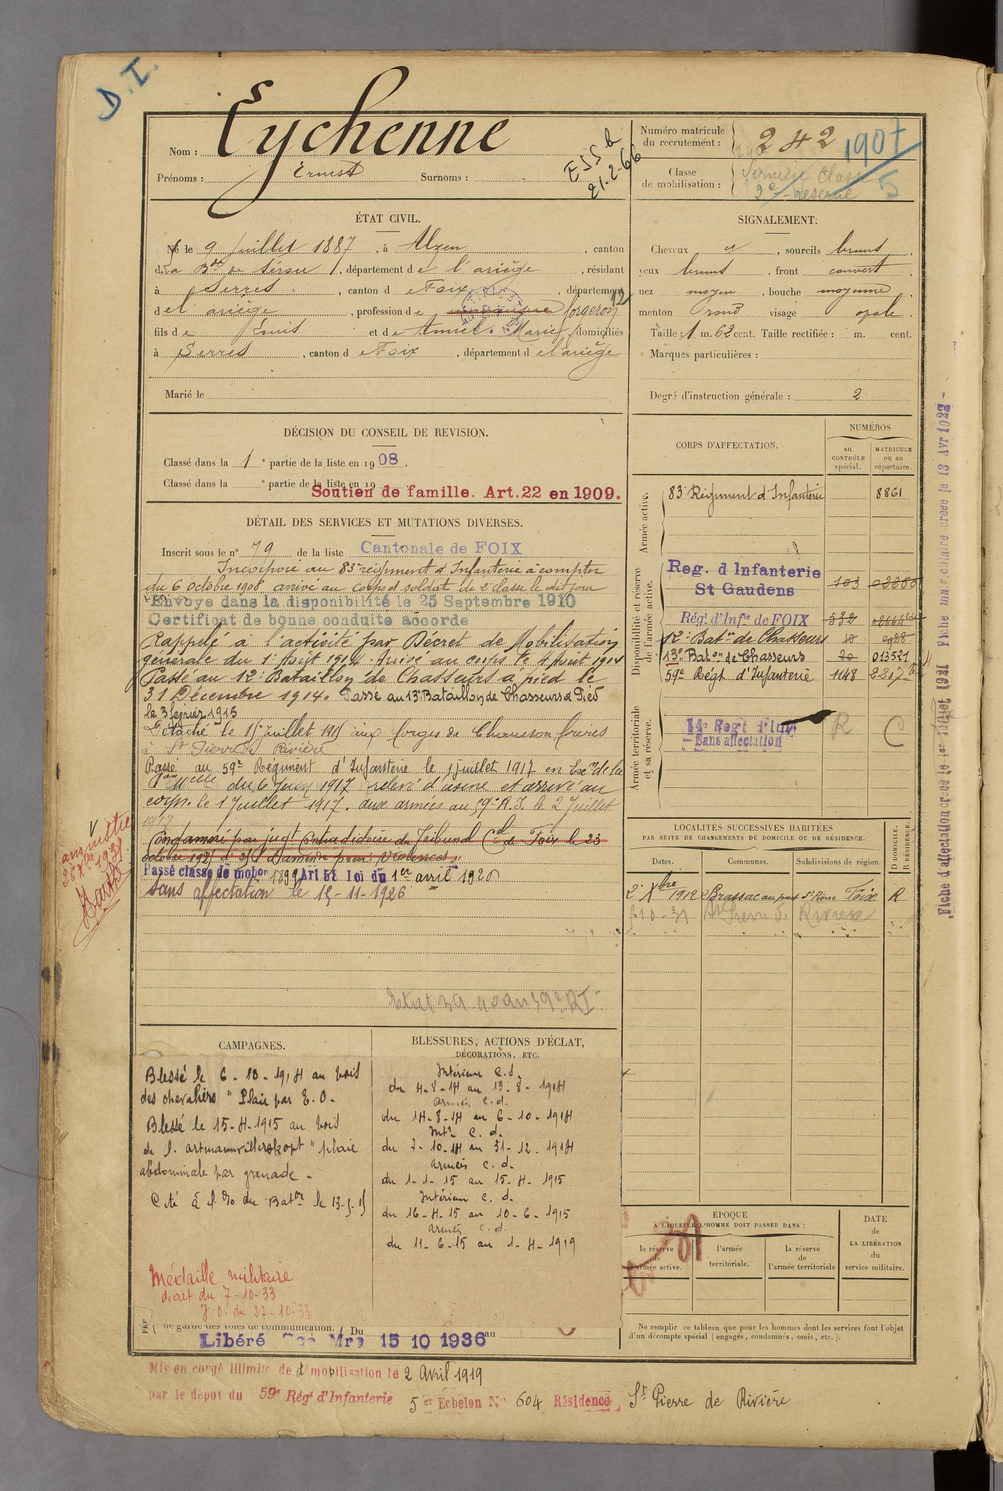 D. I.
Nom : Eychenne
Prénoms : Ernest Surnoms :
ESS b
21.2.66
Numéro matricule
du recrutement : 242
1907
Classe
de mobilisation :
Dernière Classe
2e Réserve
5
ÉTAT CIVIL.
Né le 9 Juillet 1887, à Alzen, canton
de La Bde de Sérou, département de l'ariège, résidant
à Serres, canton d Foix, département
d el ariège, profession de forgeron 12
fils de Louis et de Marie, domiciliés
à Serres, canton d Foix, département d el ariège
Marié le
SIGNALEMENT:
Cheveux et, sourcils bruns
yeux bruns, front couvert
nez moyen, bouche moyenne
menton rond visage ovale.
Taille : 1 m. 62 cent. Taille rectifiée : m. cent.
Marques particulières :
Degré d'instruction générale : 2
DÉCISION DU CONSEIL DE REVISION.
Classé dans la 1e partie de la liste en 1908.
Classé dans la e partie de la liste en 19
Soutien de famille. Art. 22 en 1909.
DÉTAIL DES SERVICES ET MUTATIONS DIVERSES.
Inscrit sous le n° 79 de la liste Cantonale de FOIX
Incorporé au 83e régiment d'Infanterie à compter
du 6 octobre 1908 arrivé au corps et soldat de 2e classe le dit jour
Envoyé dans la disponibilité le 25 Septembre 1910
Certificat de bonne conduite accordé
Rappelé à l'activité par Décret de Mobilisation
générale du 1er Août 1914. Arrivé au corps le 4 Août 1914
Passé au 12e Bataillon de Chasseurs à pied le
31 Décembre 1914. Passé au 13e Bataillon de Chasseurs à Pied
le 3 février 1915
Détaché le 15 juillet 1915 aux Forges de Chausson frères
à St Pierre de Rivière
Passé au 59e Régiment d'Infanterie le 1 juillet 1917 en Exon de la
du 6 Juin 1917 relevé d'usine et arrivé au
corps le 1 Juillet 1917. aux armées au 59e R.I. le 2 Juillet
1917
Condamné par jugt contradictoire du Tribunal Cel de Foix le 23
octobre 1925 à 25f d'amende pour Violences
Passé classe de mobon 1899 Art 58 loi du 1er avril 1920
Sans affectation le 15-11-1926
amnistie
CORPS D'AFFECTATION.
NUMÉROS
AU CONTRÔLE spécial.
MATRICULE ou au répertoire.
Armée active.
83e Régiment d'Infanterie 8861
Disponibilité et réserve de l'armée active.
Reg. d Infanterie
St Gaudens 103
Rég. d'Infie de FOIX 532
12e Baton de Chasseurs
13e Baton de Chasseurs 20 013521
59e Régt d'Infanterie 1148
Armée territoriale et sa réserve.
14e Regt d'Inf
Sans affectation
R C
Fiche d'affectation créée le 1er Juillet 1921 Fiche matriculaire créée le 13 Avr 1923 -
LOCALITÉS SUCCESSIVES HABITÉES
PAR SUITE DE CHANGEMENTS DE DOMICILE OU DE RÉSIDENCE.
Dates. Communes. Subdivisions de région. D DOMICILE. R RÉSIDENCE.
2 Xbre 1912 Brassac Foix R
St Pierre de Rivière
CAMPAGNES.
Blessé le 6-10-1914 au bois
des chevaliers " Plaie par E. O.
Blessé le 15-4-1915 au bois
de l. artmannvillerskopf " plaie
abdominale par grenade -
Cité à l'o/ du Baton le 13-5-15
Médaille militaire
décret du 7-10-33
J.O. du 27-10-33
BLESSURES, ACTIONS D'ÉCLAT,
DÉCORATIONS, ETC.
Intérieur C.S.
du 4-8-14 au 13-8-1914
armées c.d.
du 14-8-14 au 6-10-1914
Intr C.d.
du 7-10-14 au 31-12-1914
armées c.d.
du 1-1-15 au 15-4-1915
Intérieur c.d.
du 16-4-15 au 10-6-1915
armées c.d.
du 11-6-15 au 1-4-1919
ÉPOQUE
À LAQUELLE L'HOMME DOIT PASSER DANS :
la réserve de l'armée active.
l'armée territoriale.
la réserve de l'armée territoriale
DATE
de
LA LIBÉRATION
du
service militaire.
Ne remplir ce tableau que pour les hommes dont les services font l'objet
d'un décompte spécial (engagés, condamnés, omis, etc.).
de garde des voies de communication. / Du au
Libéré 15 10 1936
Mis en congé illimité de démobilisation le 2 Avril 1919
par le dépôt du 59e Rég. d'Infanterie 5e Echelon N° 604 Résidence St Pierre de Rivière